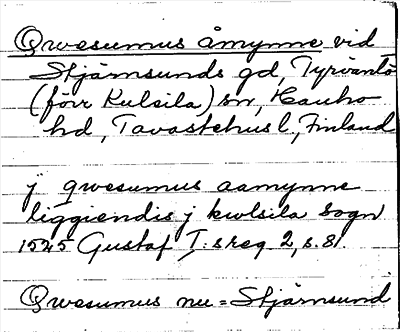 Qwesumus åmynne vid
Stjärnsunds gd, Tyrväntö
(förr Kulsila) sn, Hauho
hd, Tavastehus l, Finland
j qwesumus aamynne
liggiendis j kwlsila sogn
1545 Gustaf I:s reg 2, s. 81.
Qwesumus nu = Stjärnsund